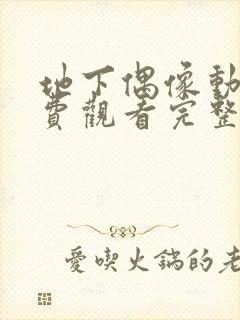 地下偶像動
費觀看完整
愛喫火鍋的老